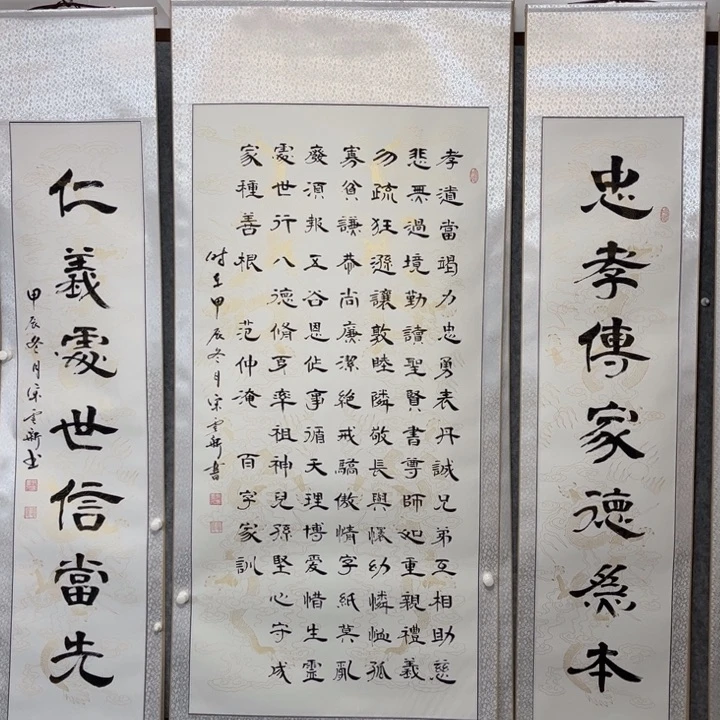 忠孝傳家德為本
孝道當竭力忠勇表丹誠兄弟互相助慈
悲無過境勤讀聖賢書尊師如重親禮義
勿疏狂遜讓敦睦隣敬長與懷幼憐恤孤
寡貧謙恭尚廉潔絕戒驕傲情字紙莫亂
廢須報五谷恩作事循天理博愛惜生靈
處世行八德脩身率祖神兒孫堅心守成
家種善根 范仲淹 百字家訓
时在甲辰冬月宋雲新書
仁義處世信當先
甲辰冬月宋雲新書